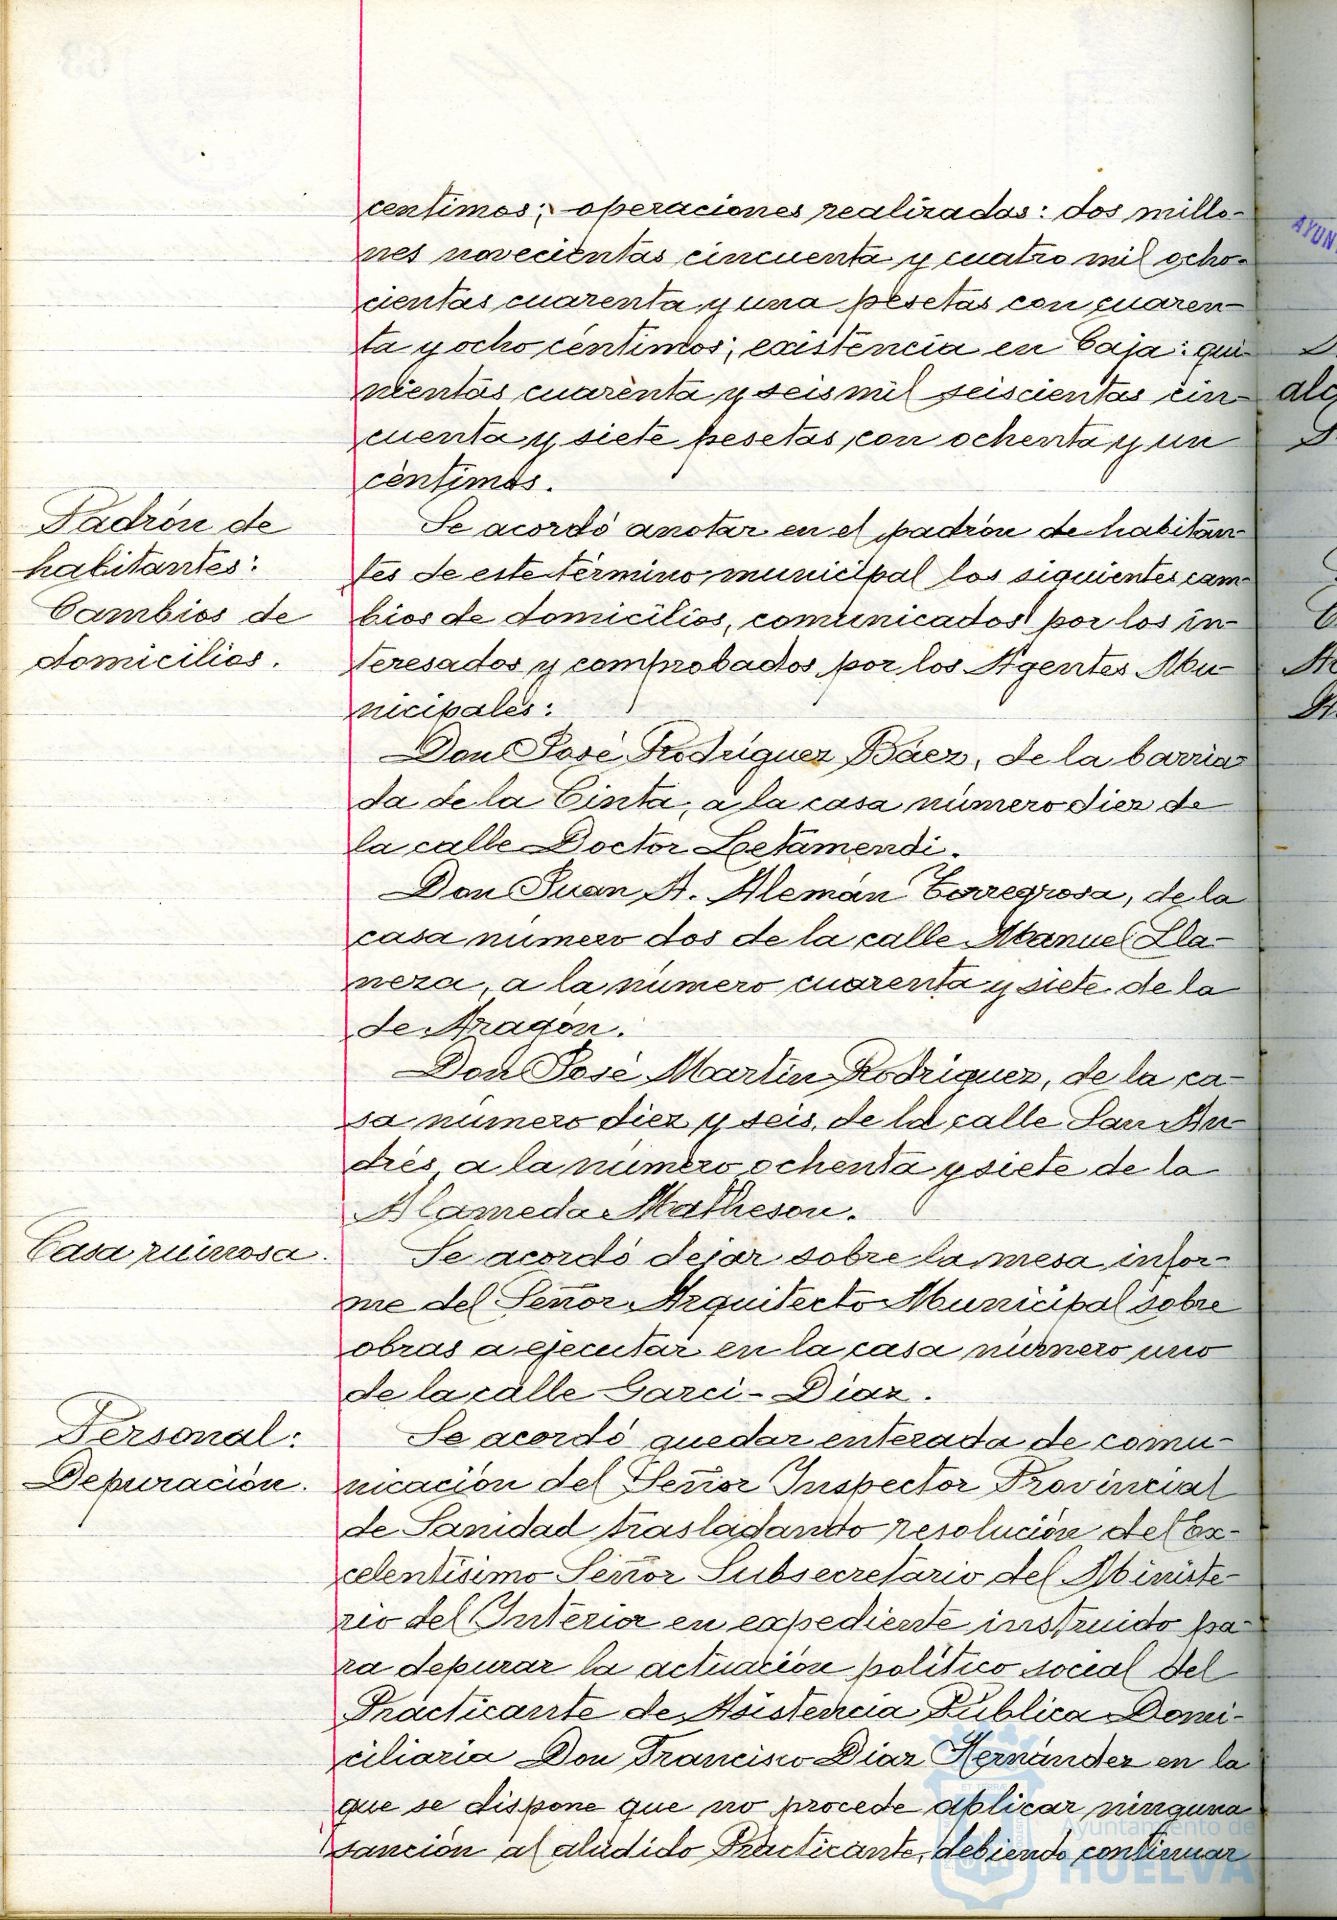 centimos; operaciones realizadas: dos millo-
nes novecientas cincuenta y cuatro mil ocho-
cientas cuarenta y una pesetas con cuaren-
ta y ocho céntimos; existencia en Caja: qui-
nientas cuarenta y seis mil seiscientas cin-
cuenta y siete pesetas con ochenta y un
céntimos.
Padrón de
habitantes:
Cambios de
domicilios.
Se acordó anotar en el padrón de habitan-
tes de este término municipal los siguientes cam-
bios de domicilios, comunicados por los in-
teresados y comprobados por los Agentes Mu-
nicipales:
Don José Rodríguez Báez, de la barria-
da de la Cinta, a la casa número diez de
la calle Doctor Letamendi.
Don Juan A. Alemán Torregrosa, de la
casa número dos de la calle Manuel Lla-
neza, a la número cuarenta y siete de la
de Aragón.
Don José Martin Rodriguez, de la ca-
sa número diez y seis, de la calle San An-
drés, a la número ochenta y siete de la
Alameda Matheson.
Casa ruinosa.
Se acordó dejar sobre la mesa infor-
me del Señor Arquitecto Municipal sobre
obras a ejecutar en la casa número uno
de la calle Garci-Diaz.
Personal:
Depuración.
Se acordó quedar enterada de comu-
nicación del Señor Inspector Provincial
de Sanidad trasladando resolución del Ex-
celentísimo Señor Subsecretario del Ministe-
rio del Interior en expediente instruido pa-
ra depurar la actuación político social del
Practicante de Asistencia Pública Domi-
ciliaria Don Francisco Diaz Hernández en la
que se dispone que no procede aplicar ninguna
sanción al aludido Practicante, debiendo continuar
Ayuntamiento de
HUELVA